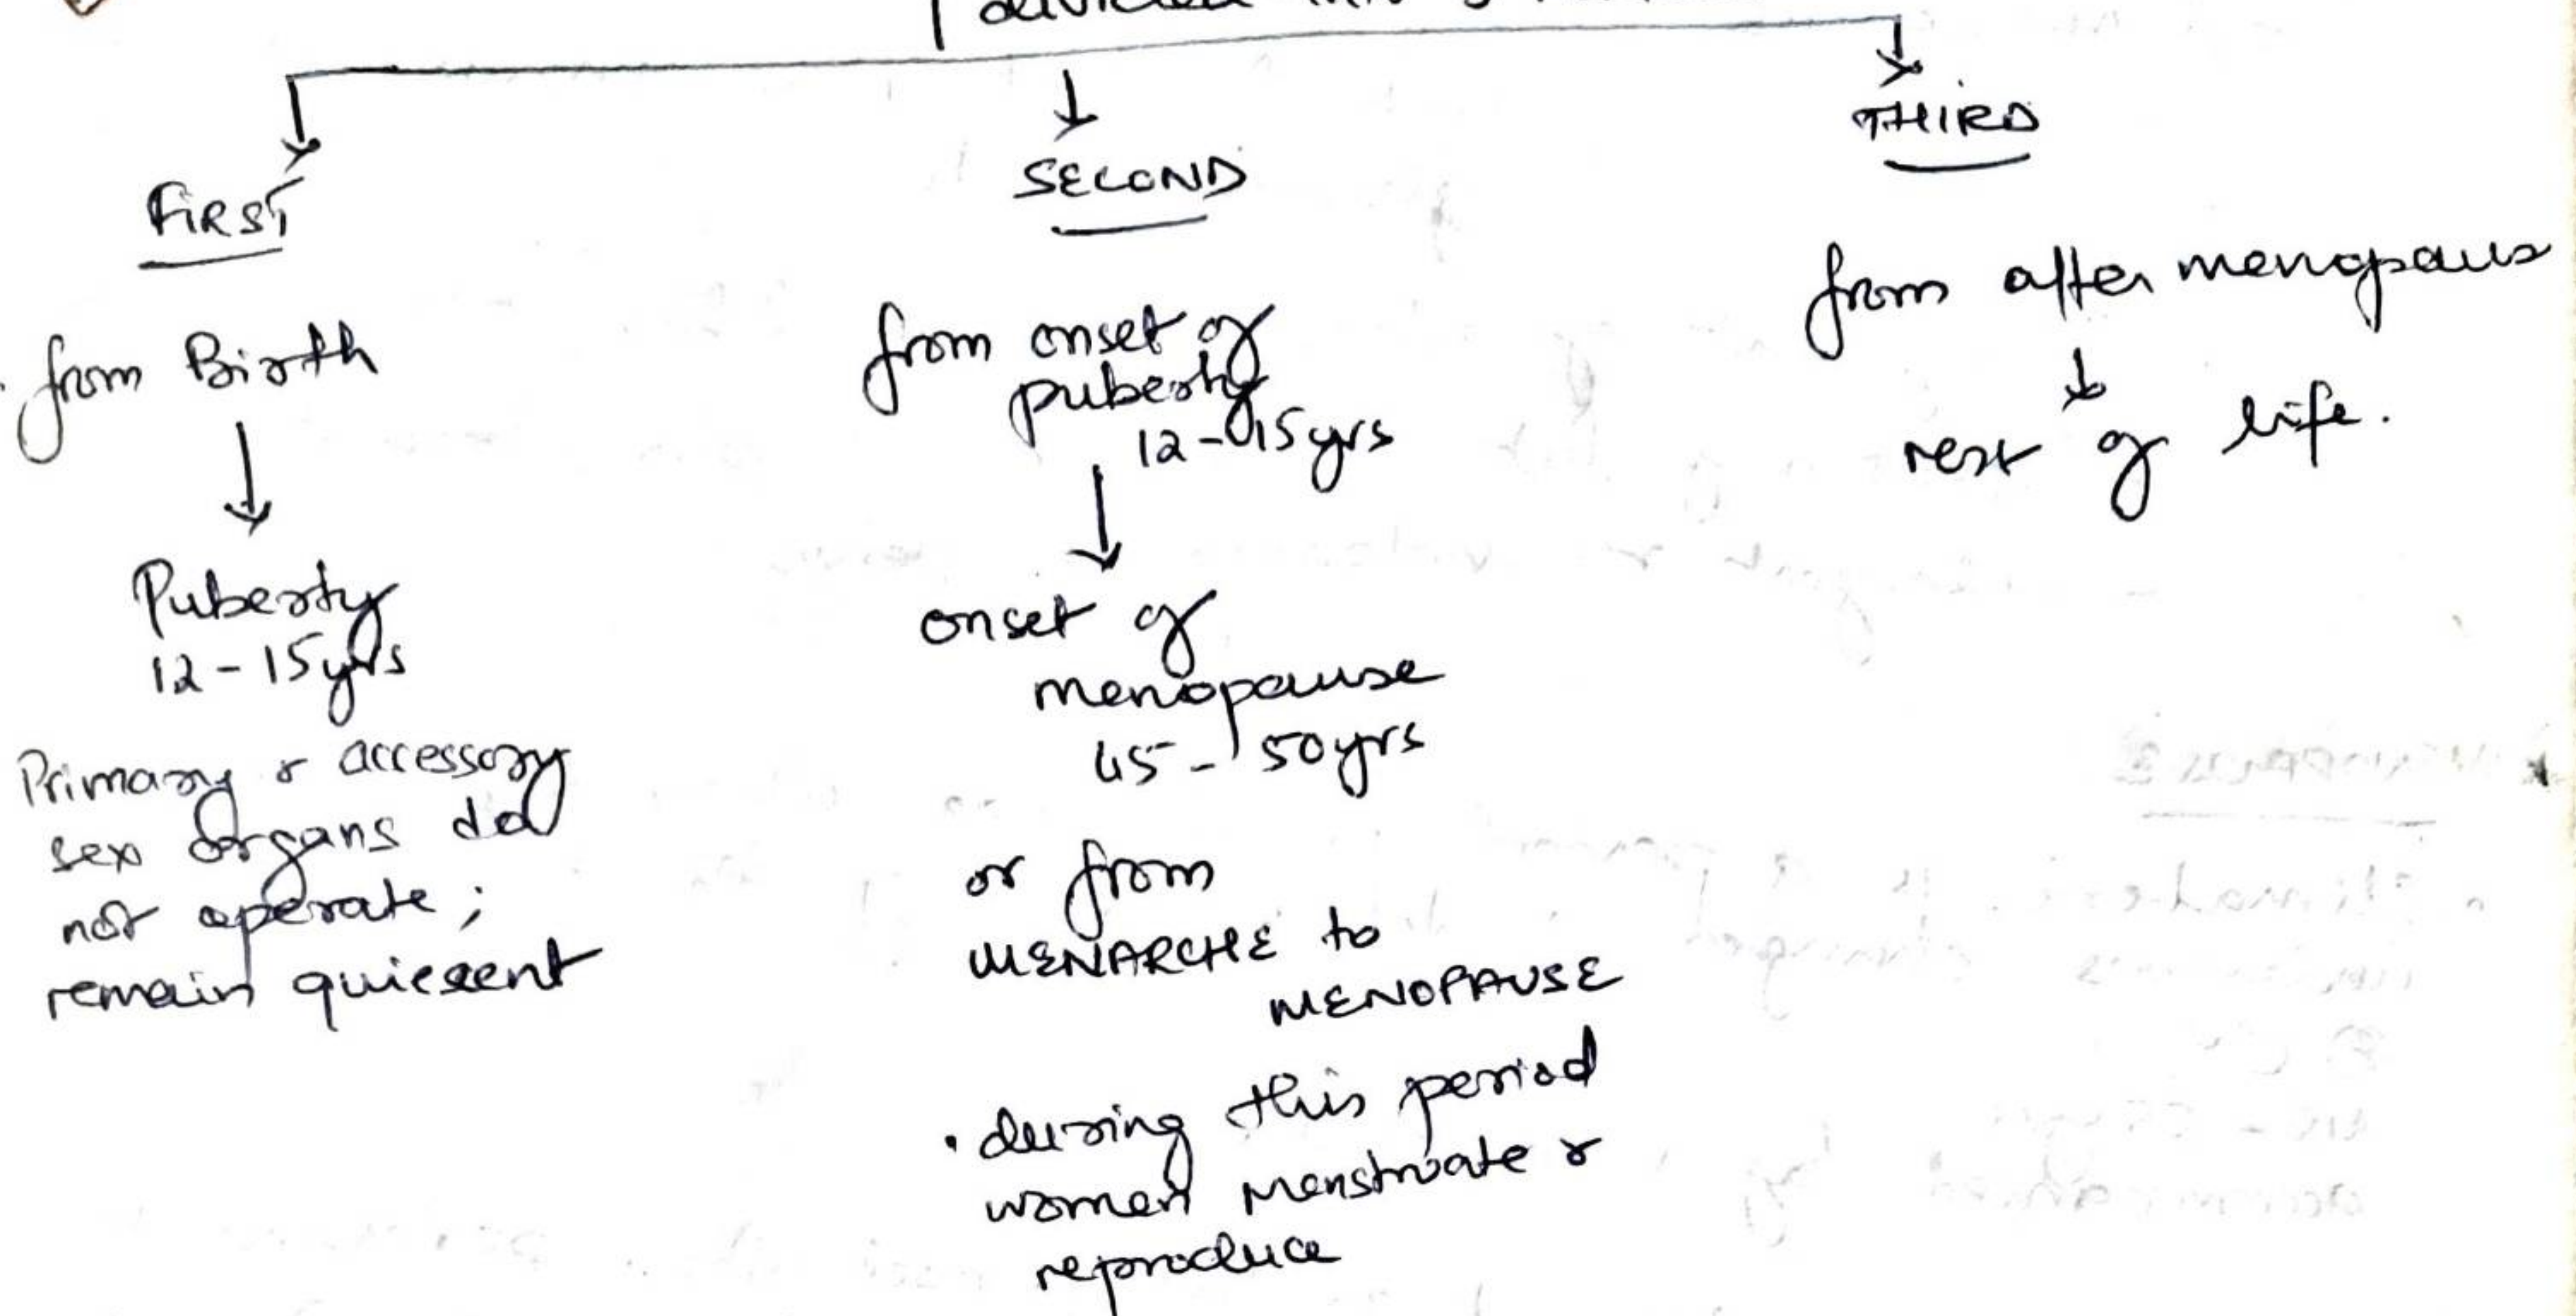 divided into 3
FIRST
from Birth
↓
Puberty
12-15yrs
Primary & accessory
sex organs do
not operate;
remain quiesent
SECOND
from onset of
puberty
12-15yrs
↓
onset of
menopause
45-50yrs
or from
MENARCHE to
MENOPAUSE
• during this period
women menstruate &
reproduce
THIRD
from after menopaus
↓
rest of life.